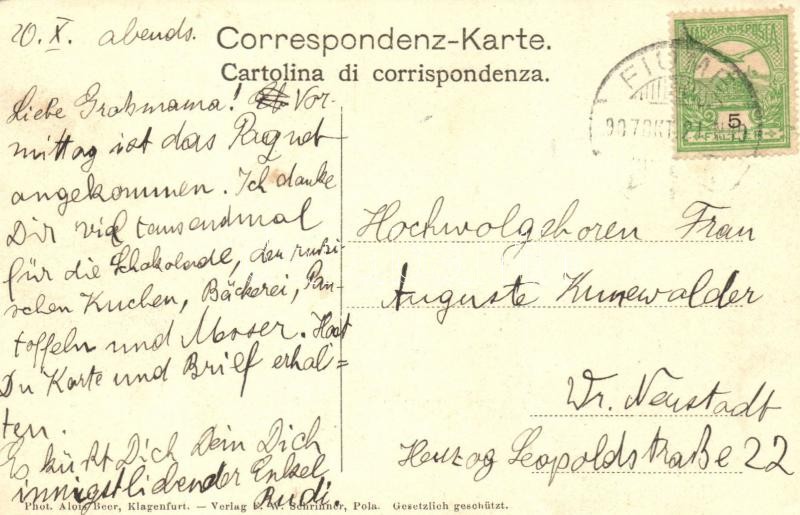 20. X. abends.
Correspondenz-Karte.
Cartolina di corrispondenza.
MAGYAR KIR. POSTA
FIUME
907 OKT. 21
5
FILLÉR
Liebe Grosmama! Vor-
mittag ist das Paquet
angekommen. Ich danke
Dir viel tausendmal
für die Schokolade, den russi-
schen Kuchen, Bäckerei, Pan-
toffeln und Moser. Hast
Du Karte und Brief erhal=
ten.
Es küßt Dich Dein Dich
innigstliebender Enkel
Rudi.
Hochwolgeboren Frau
Auguste Kunewalder
Wr. Neustadt
Herzog Leopoldstraße 22
Phot. Alois Beer, Klagenfurt. — Verlag F. W. Schrinner, Pola. Gesetzlich geschützt.